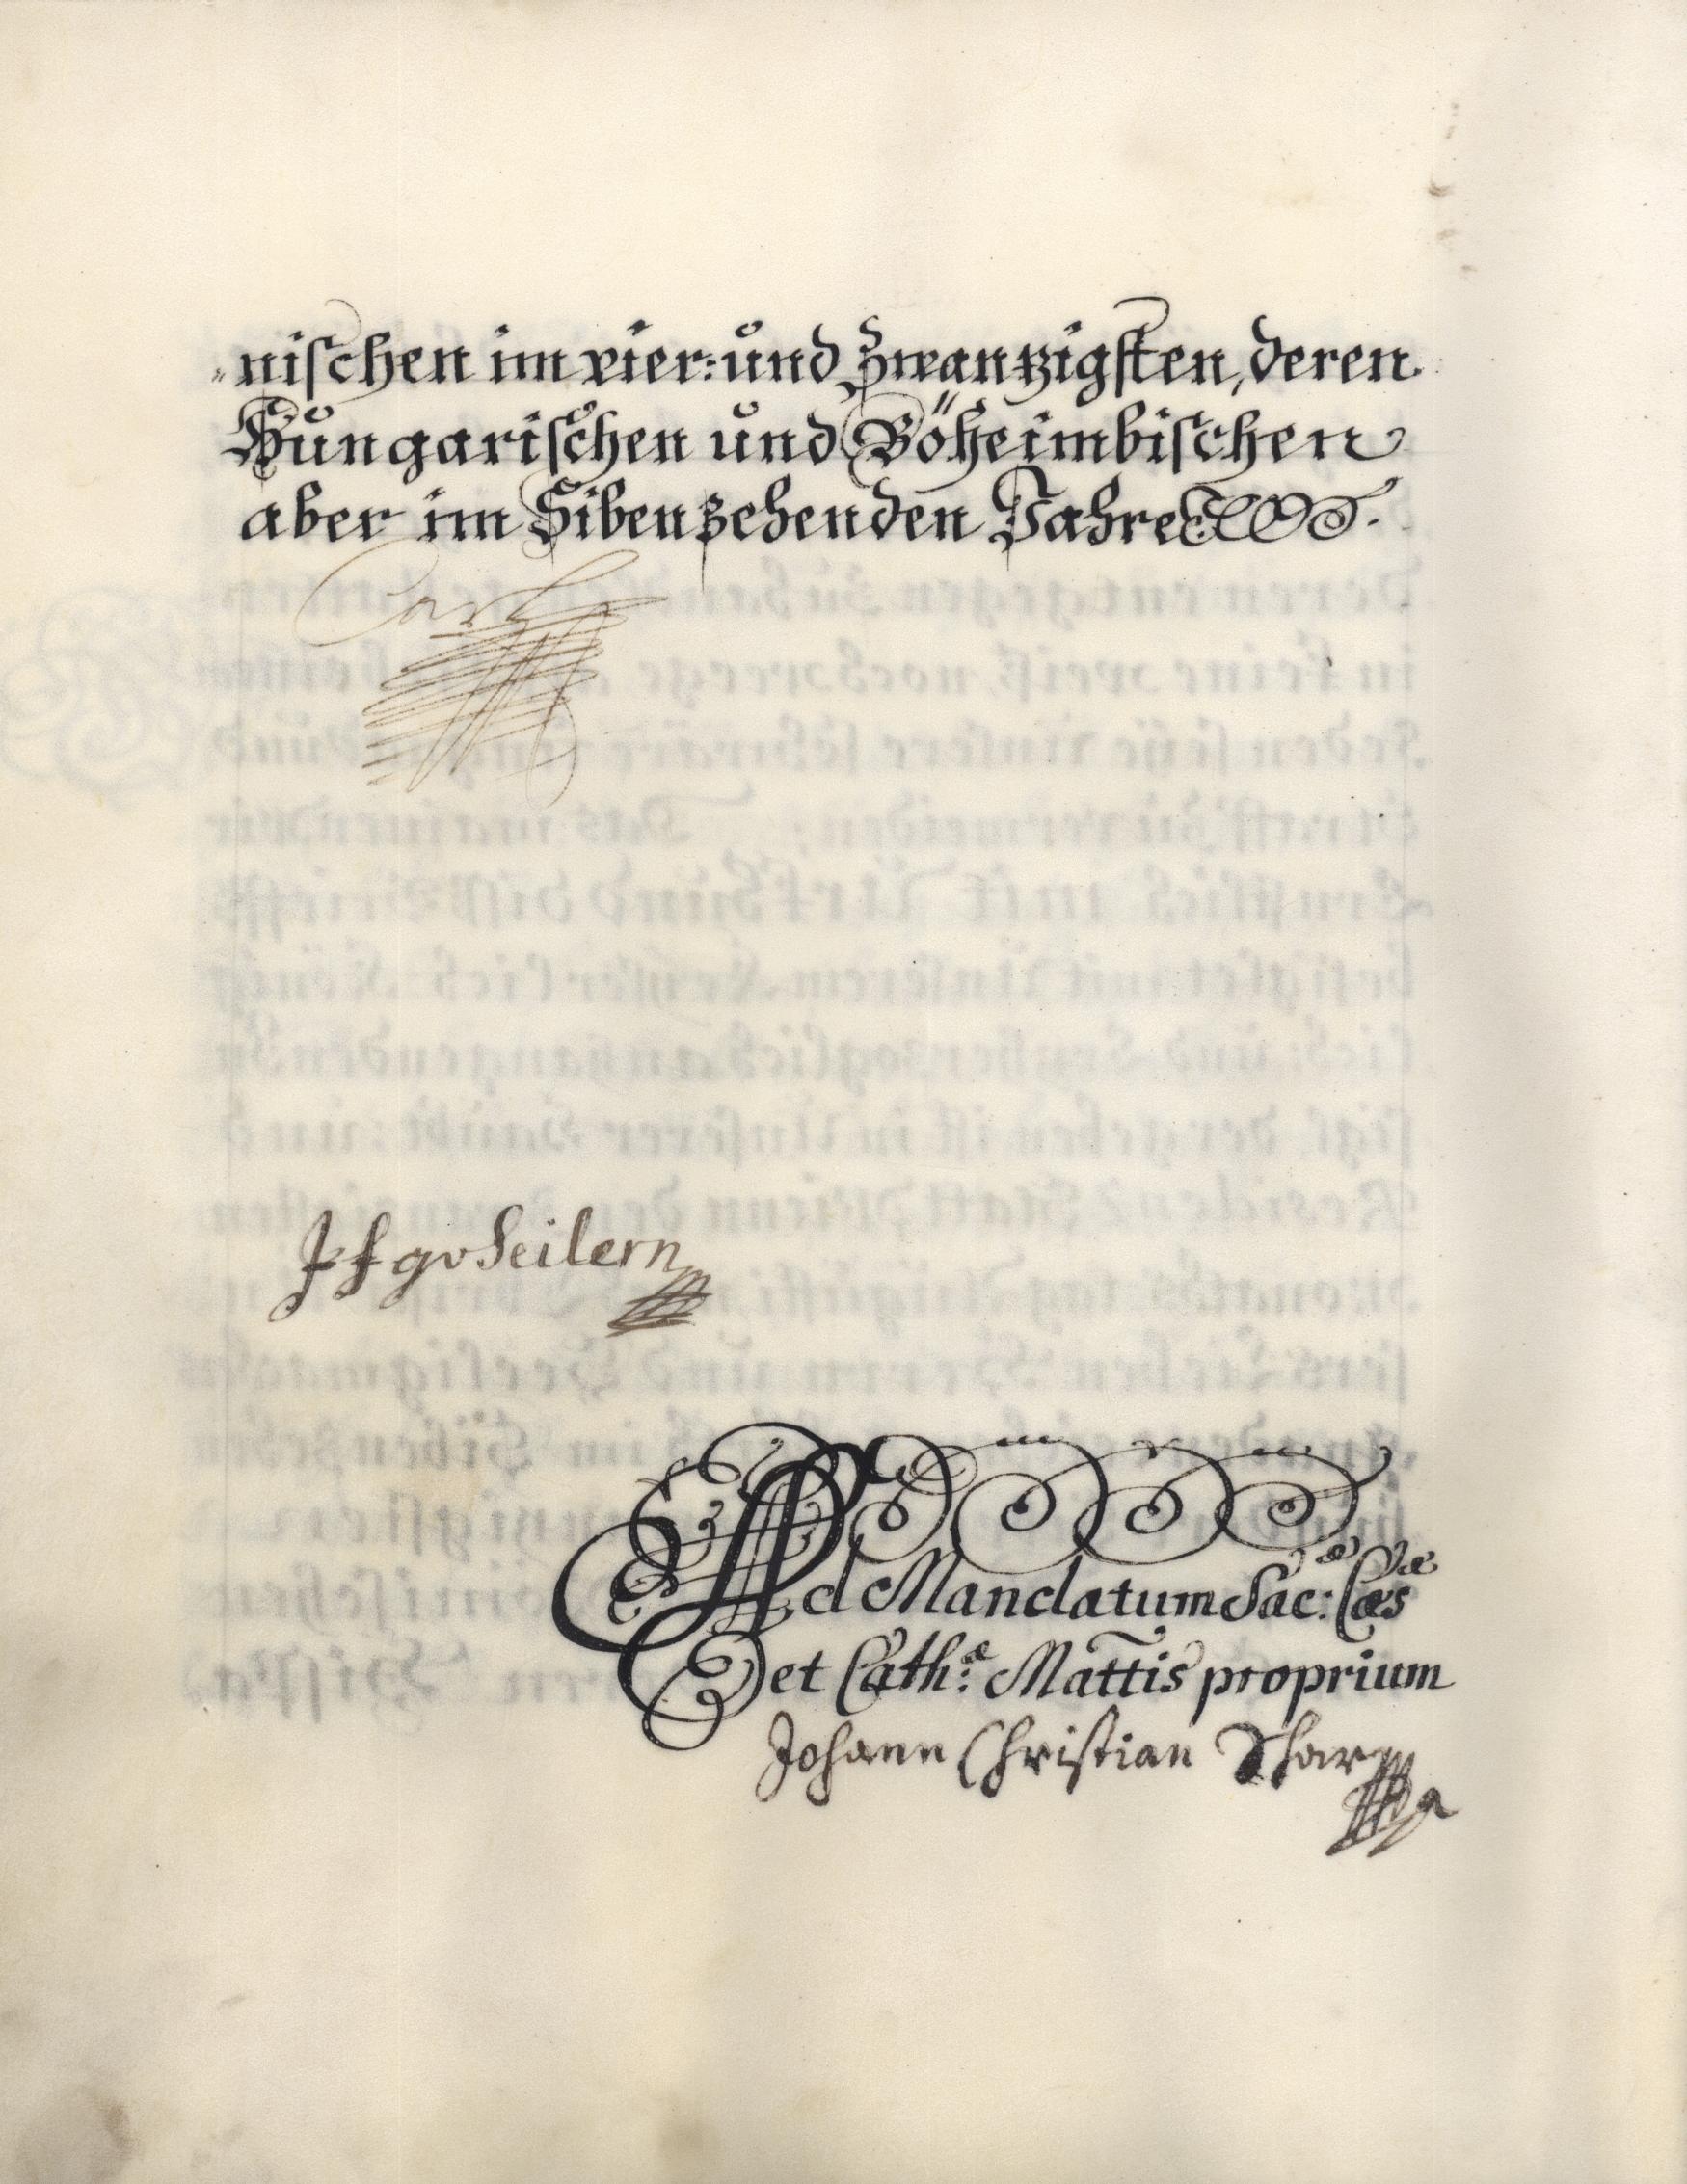 „nischen im vier: und Zwantzigsten, deren
Hungarischen und Böheimbischen
aber im Sibenzehenden Jahre
Carl
JFgvSeilern
Ad Mandatum Sac:ae Caesae
et Cath:ae Mattis proprium
Johann Christian